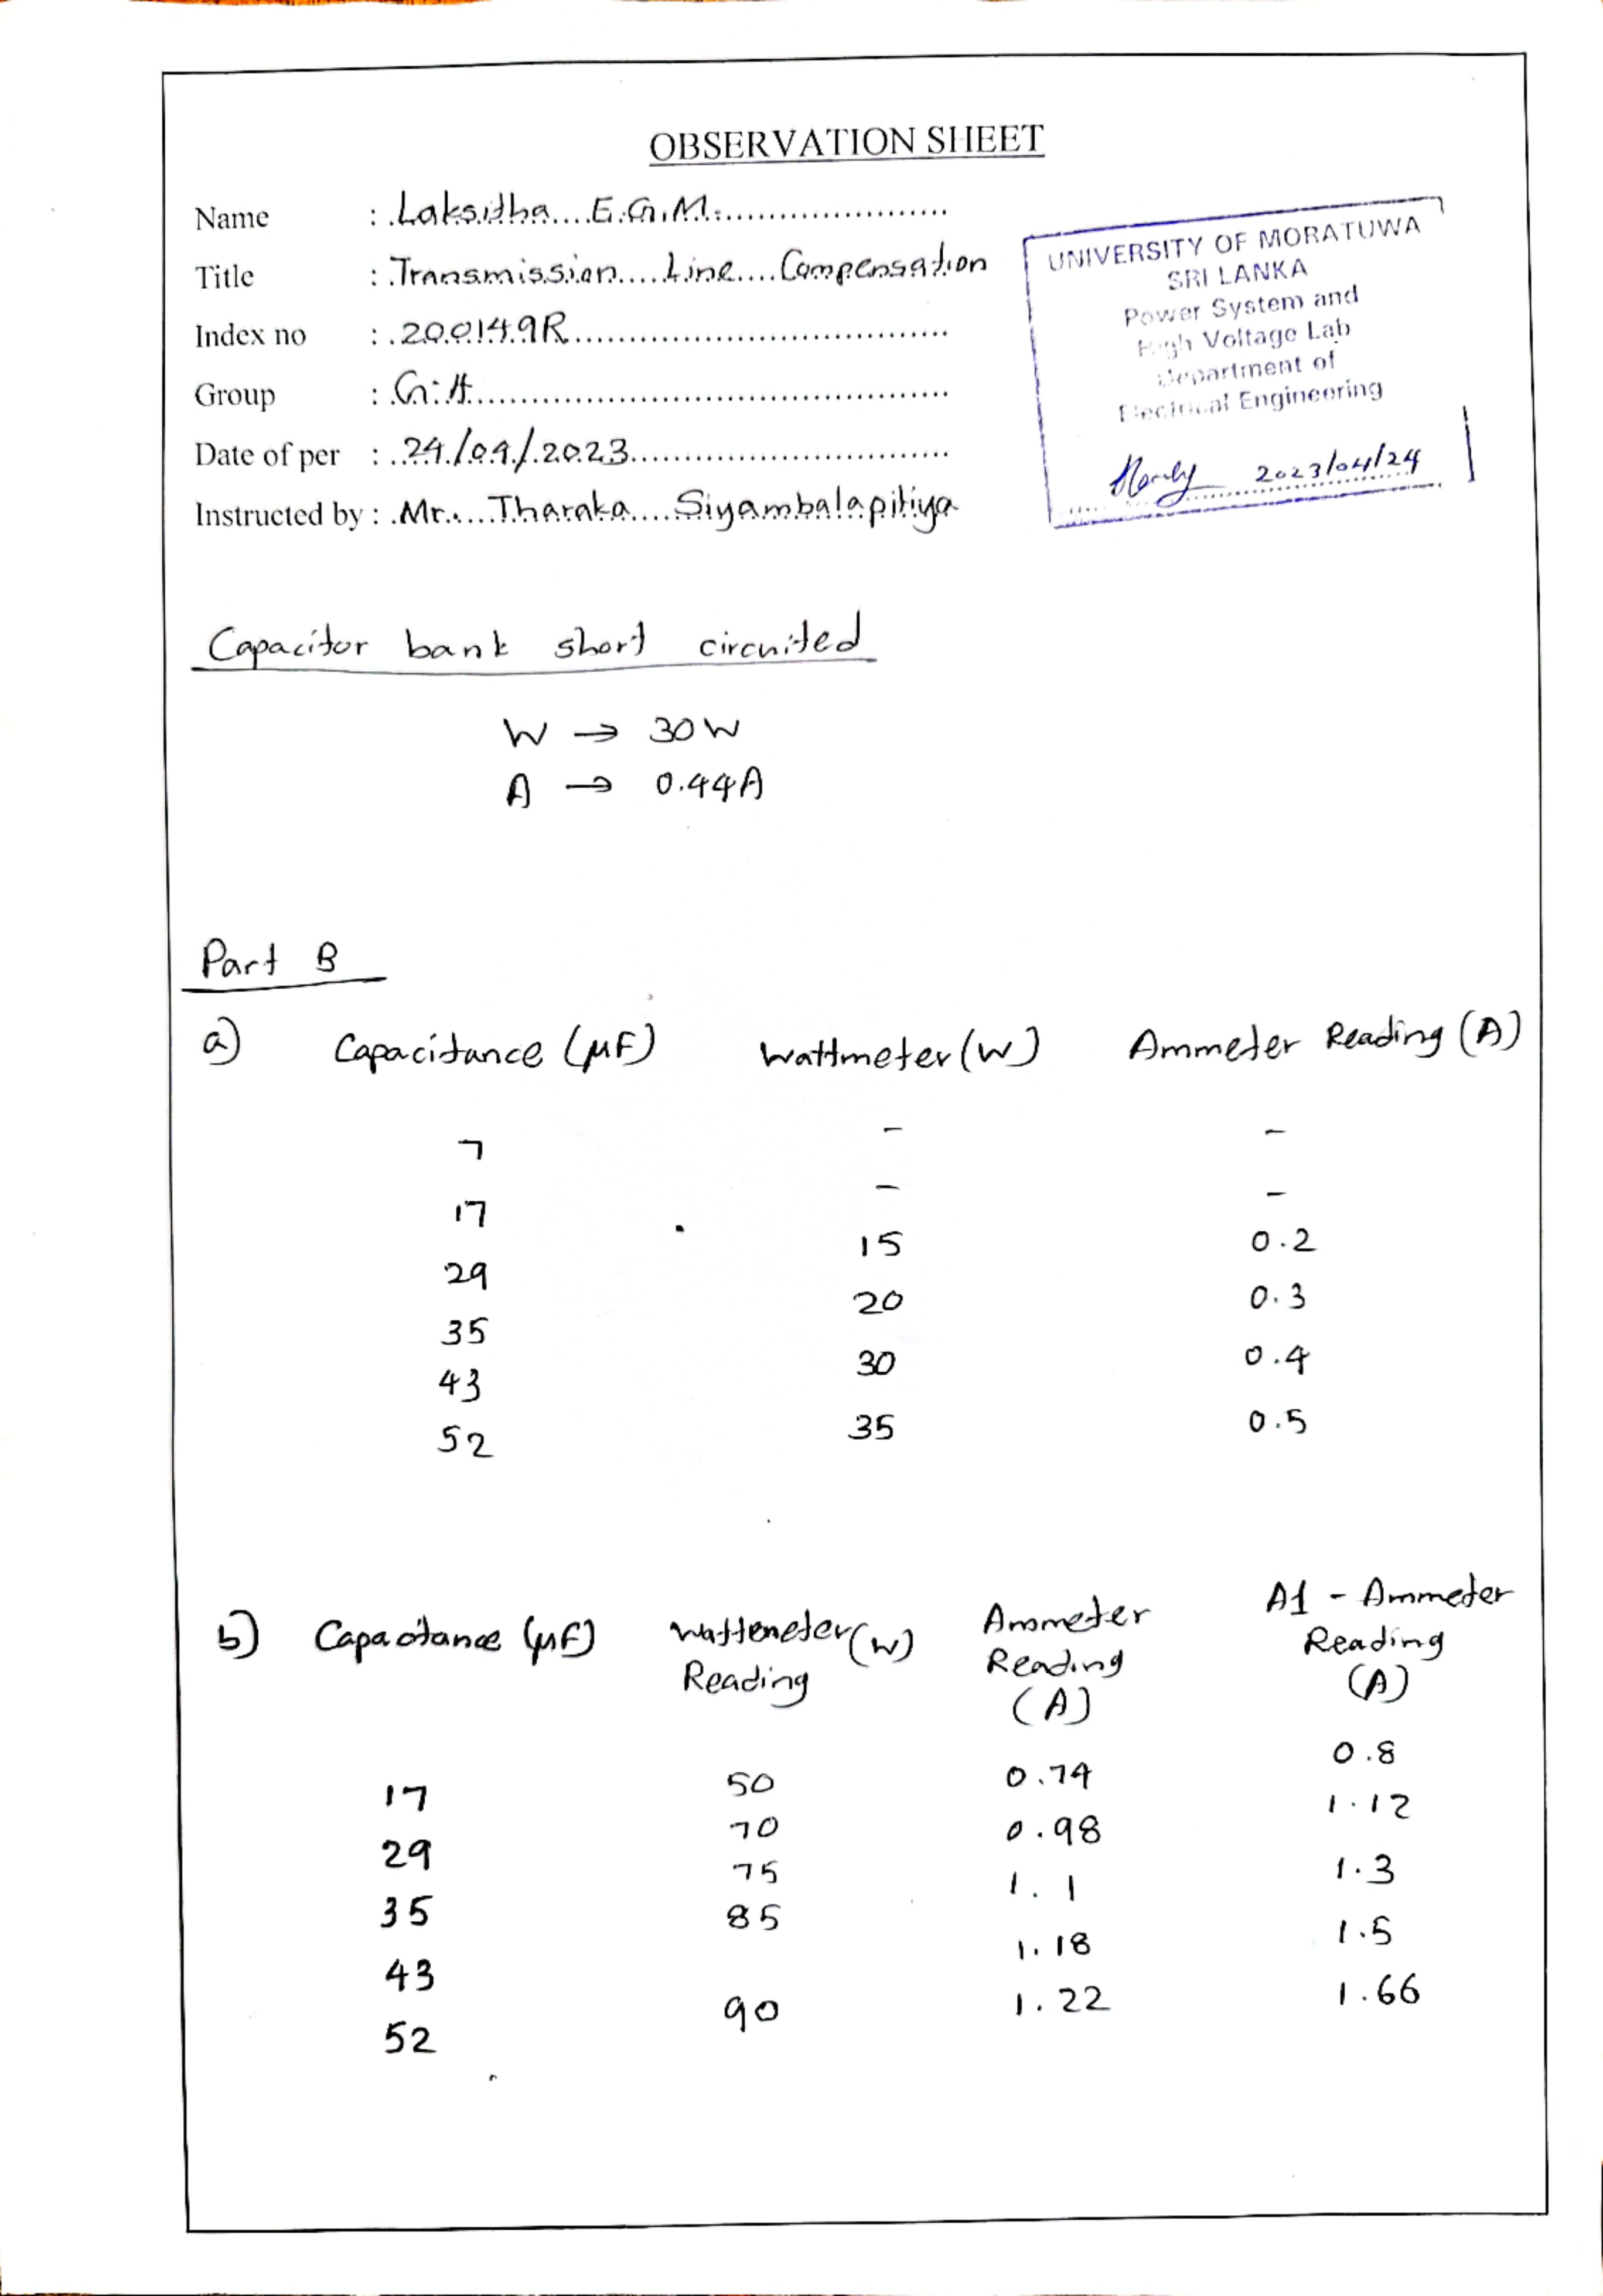 OBSERVATION SHEET
Name : Laksitha E.G.M.
Title : Transmission Line Compensation
Index no : 200149R
Group : G:4
Date of per : 24/04/2023
Instructed by : Mr. Tharaka Siyambalapitiya
UNIVERSITY OF MORATUWA
SRI LANKA
Power System and
High Voltage Lab
Department of
Electrical Engineering
2023/04/24
Capacitor bank short circuited
W → 30W
A → 0.44A
Part B
a) Capacitance (μF) Wattmeter (W) Ammeter Reading (A)
7 - -
17 - -
29 15 0.2
35 20 0.3
43 30 0.4
52 35 0.5
b) Capacitance (μF) Wattmeter (W) Reading Ammeter Reading (A) A1 - Ammeter Reading (A)
17 50 0.74 0.8
29 70 0.98 1.12
35 75 1.1 1.3
43 85 1.18 1.5
52 90 1.22 1.66